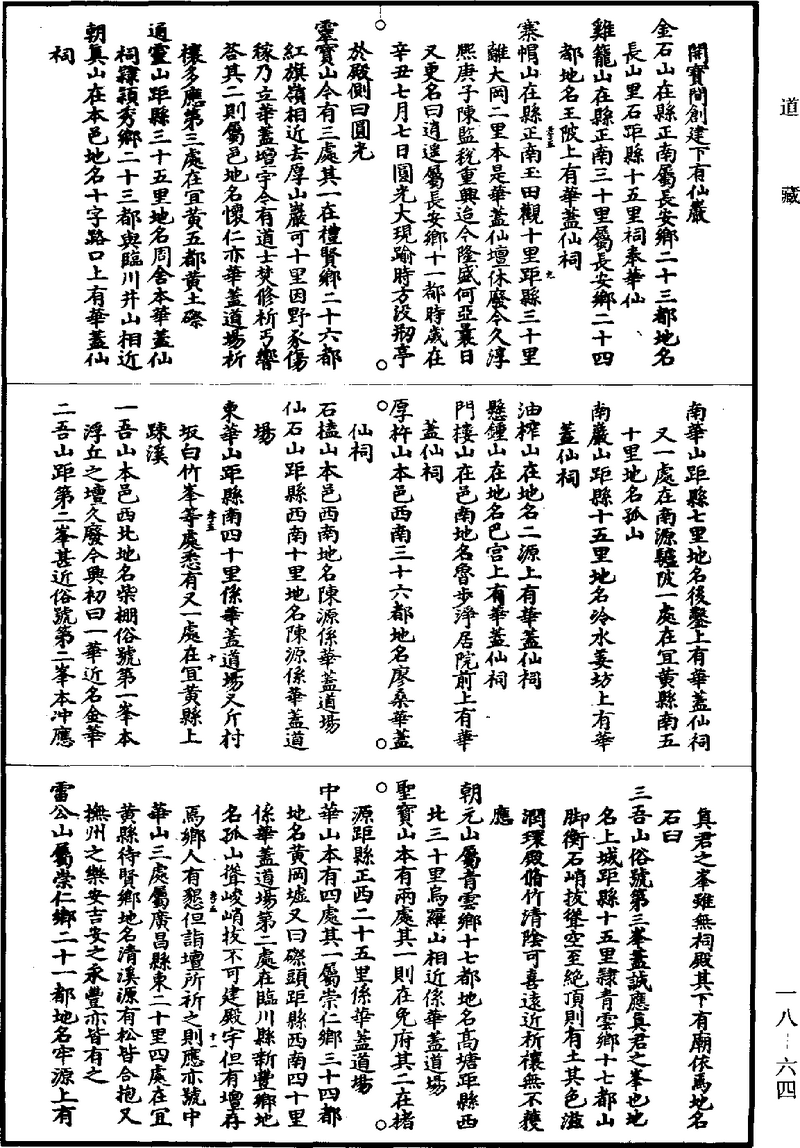 道藏
開寶間創建下有仙巖
金石山在縣正南屬長安鄉二十三都地名
長山里石距縣十五里祠奉華仙
雞籠山在縣正南三十里屬長安鄉二十四
都地名王陂上有華蓋仙祠
寨帽山在縣正南玉田觀十里距縣三十里
離大岡二里本是華蓋仙壇休廢今久淳
熙庚子陳監稅重興迨今隆盛何亞曩日
又更名曰逍遥屬長安鄉十一都時歲在
辛丑七月七日圓光大現踰時方没剏亭
於殿側曰圓光
靈寶山今有三處其一在禮賢鄉二十六都
紅旗嶺相近去厚山巖可十里因野豕傷
稼乃立華蓋壇宇今有道士焚修祈丐響
荅其二則屬邑地名懷仁亦華蓋道場祈
禳多應第三處在宜黃五都黃土磜
通靈山距縣三十五里地名周舍本華蓋仙
祠隸潁秀鄉二十三都與臨川井山相近
朝真山在本邑地名十字路口上有華蓋仙
祠
南華山距縣七里地名後鑿上有華蓋仙祠
又一處在南源驢陂一處在宜黃縣南五
十里地名孤山
南巖山距縣十五里地名冷水姜坊上有華
蓋仙祠
油榨山在地名二源上有華蓋仙祠
懸鍾山在地名巴宫上有華蓋仙祠
門樓山在邑南地名魯步淨居院前上有華
蓋仙祠
厚杵山本邑西南三十六都地名廖桑華蓋
仙祠
石榼山本邑西南地名陳源係華蓋道場
仙石山距縣西南十里地名陳源係華蓋道
場
東華山距縣南四十里係華蓋道場又斤村
坂白竹峯等處悉有又一處在宜黃縣上
踈溪
一吾山本邑西北地名柴棚俗號第一峯本
浮丘之壇久廢今興初曰一華近名金華
二吾山距第二峯甚近俗號第二峯本冲應
真君之峯雖無祠殿其下有廟依焉地名
石臼
三吾山俗號第三峯蓋誠應真君之峯也地
名上城距縣十五里隸青雲鄉十七都山
脚衡石峭拔聳空至絶頂則有土其色滋
潤環殿脩竹清陰可喜遠近祈禳無不獲
應
朝元山屬青雲鄉十七都地名髙塘距縣西
北三十里烏羅山相近係華蓋道場
聖寶山本有兩處其一則在免府其二在楮
源距縣正西二十五里係華蓋道場
中華山本有四處其一屬崇仁鄉三十四都
地名黃岡墟又曰磜頭距縣西南四十里
係華蓋道場第二處在臨川縣新豐鄉地
名孤山聳峻峭拔不可建殿宇但有壇存
焉鄉人有懇但詣壇所祈之則應亦號中
華山三處屬廣昌縣東二十里四處在宜
黃縣待賢鄉地名清溪源有松皆合抱又
撫州之樂安吉安之永豐亦皆有之
雷公山屬崇仁鄉二十一都地名牢源上有
一八-六四